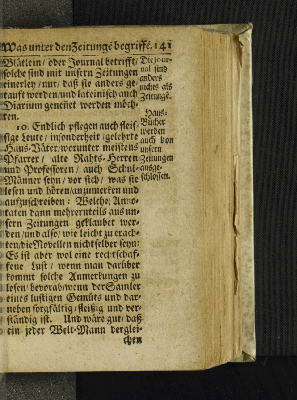 Was unter den Zeitungē begriffē. 141
Blätlein / oder Journal betrifft /
solche sind mit unsern Zeitungen
einerley / nur / daß sie anders ge-
taufft worden / und lateinisch auch
Diarium genennet werden möch-
ten.
10. Endlich pflegen auch fleis-
sige Leute / insonderheit / gelehrte
Haus-Väter / worunter meistens
Pfarrer / alte Rahts-Herren
und Professoren / auch Schul-
Männer seyn / vor sich / was sie
lesen und hören / anzumercken und
aufzuschreiben: Welche Anno-
taten dann mehrernteils aus un-
sern Zeitungen geklaubet wer-
den / und also / wie leicht zu erach-
ten / die Novellen nicht selber seyn:
Es ist aber wol eine rechtschaf-
fene Lust / wenn man darüber
kommt solche Anmerkungen zu
lesen / bevorab / wenn der Samler
eines lustigen Gemüts und dar-
neben sorgfältig / fleißig und ver-
ständig ist. Und wäre gut / daß
ein jeder Welt-Mann derglei-
chen
Die Jour-
nal sind
anders
nichts als
Zeitungē.
Haus-
Bücher
werden
auch von
unsern
Zeitungen
ausge-
schlossen.